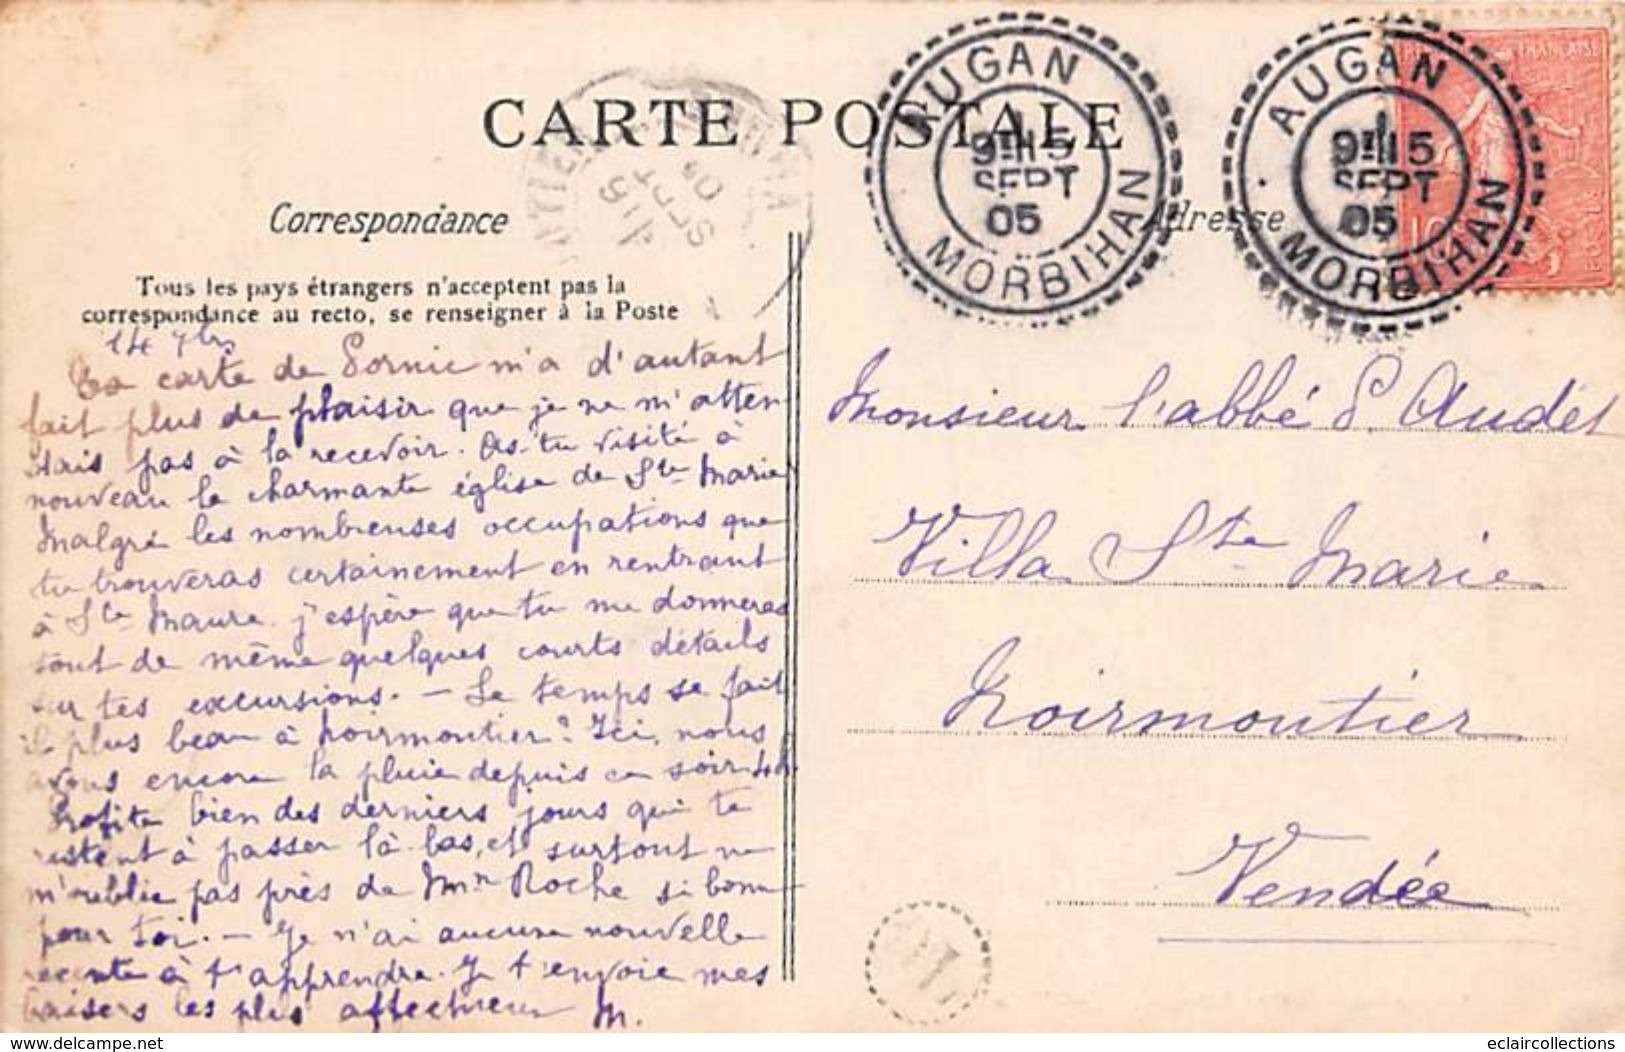 CARTE POSTALE
Correspondance
Adresse
Tous les pays étrangers n'acceptent pas la
correspondance au recto, se renseigner à la Poste
AUGAN
15
SEPT
05
MORBIHAN
AUGAN
15
SEPT
05
MORBIHAN
FRANÇAISE
10
14 7bre
Ta carte de Pornic m'a d'autant
fait plus de plaisir que je ne m'atten
dais pas à la recevoir. As-tu visité à
nouveau la charmante église de Ste Marie
Malgré les nombreuses occupations que
tu trouveras certainement en rentrant
à Ste Maure. j'espère que tu me donneras
tout de même quelques courts détails
sur tes excursions. — Le temps se fait
il plus beau à Noirmoutier? Ici, nous
avons encore la pluie depuis ce soir 4h.
Profite bien des derniers jours qui te
restent à passer là-bas, et surtout ne
m'oublie pas près de Mme Roche si bonne
pour toi. — Je n'ai aucune nouvelle
récente à t'apprendre. Je t'envoie mes
baisers les plus affectueux M.
Monsieur l'abbé P. Audet
Villa Ste Marie
Noirmoutier
Vendée
delcampe.net
eclaircollections